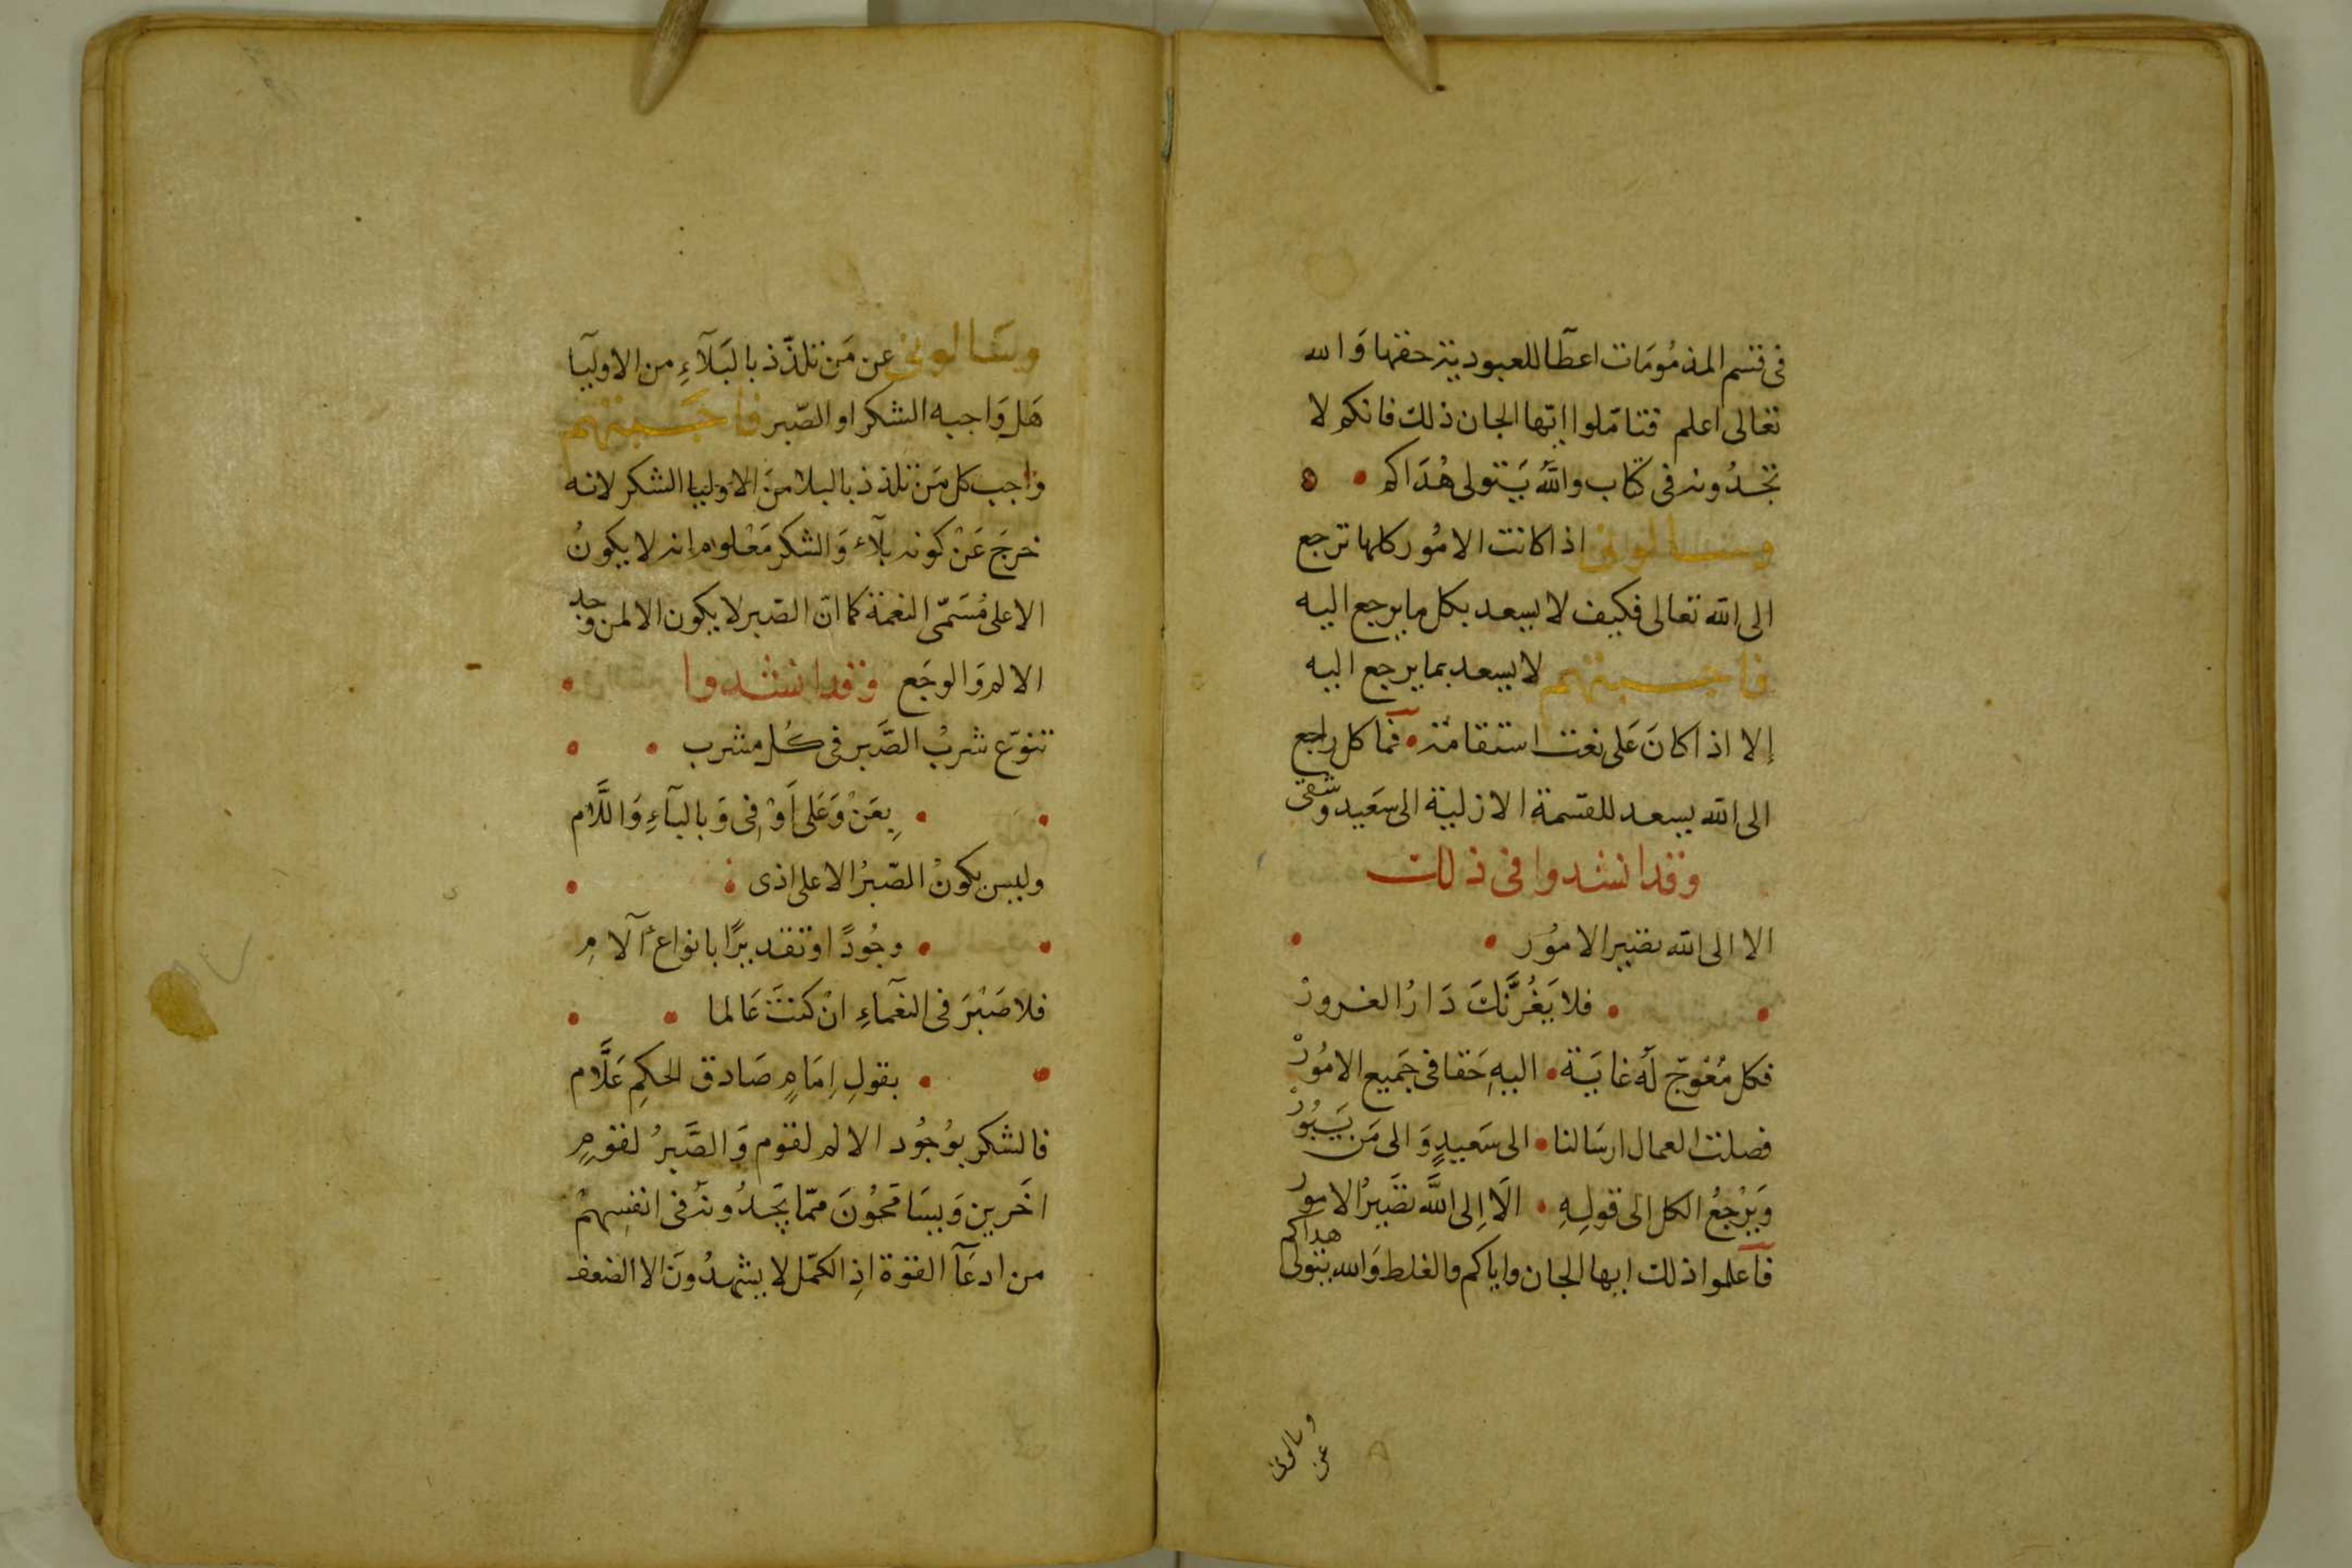 فى قسم المذمُومَات اعطآ للعبودية حقها وَالله
تعالى اعلم فتامّلوا ايّها الجان ذلك فانكم لا
تجدُونه فى كتاب واللّه يَتولى هُدَاكم
وسالونى اذا كانت الامُور كلها ترجع
الى الله تعالى فكيف لا يسعد بكل ما يرجع اليه
فاجبتهم لا يسعد بما يرجع اليه
إلا اذا كانَ عَلى نعت استقامة فما كل راجع
الى الله يسعد للقسمة الازلية الى سَعيد وشقى
وقد انشدوا فى ذلك
الا الى الله تصير الامُور
فلا يَغُرَّنكَ دَارُ الغرورْ
فكل مُعْوَجّ لَه غايَة اليهِ حَقا فى جَميع الامُورْ
فصلت العمال ارسَالنا الى سَعيدٍ وَالى مَن يَبُورْ
وَيَرْجعُ الكل الى قولِهِ الَا اِلى اللَّه تصَيرُ الامور
فآعلموا ذلك ايها الجان واياكم والغلط وَالله يتولى هداكم
وسالونى
عن
وسَالونى عن مَن تلذّذ بالبَلآءِ من الاوليآ
هَل وَاجبه الشكر او الصّبر فاجَبتهم
وَاجب كل مَن تلذذ بالبلا منَ الاوليا الشكر لانه
خرجَ عَنْ كونه بلآء وَالشكر مَعْلوم انه لا يكونُ
الا على مُسَمّى النعمة كما انّ الصّبر لا يكون الا لمن وجد
الالم وَالوجَع وقد انشدوا
تنوّع شربُ الصَّبر فى كُل مشرب
بِعَنْ وَعَلى اَوْ فِى وَبالبآءِ وَاللَّام
وليس يكونُ الصّبرُ الا على اذى
وجُودًا او تقديرًا بانواع آلامِ
فلا صَبْرَ فى النعمآءِ انْ كنتَ عَالما
بقولِ اِمَامٍ صَادق الحكمِ عَلَّام
فالشكر بوُجُود الالم لقوم وَالصَّبرُ لقومٍ
اخَرين وَيسَامحُونَ ممّا يَجدُونَه فى انفسِهمْ
من ادعَآ القوة اذِ الكمّل لا يشهدُونَ الا الضعف